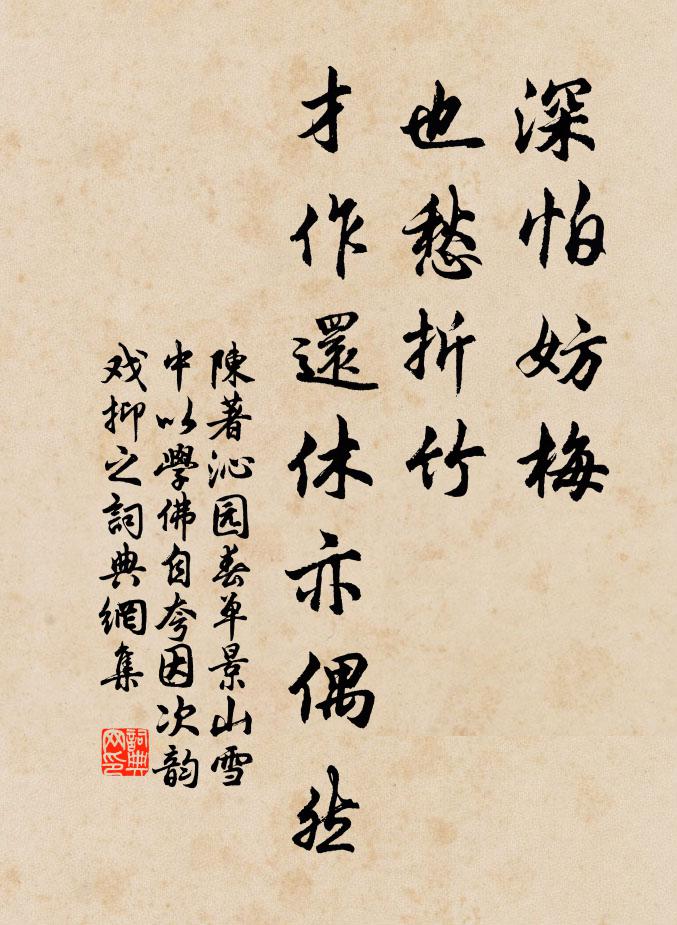 深怕妨梅
也愁折竹
才作還休亦偶然
陳著沁园春单景山雪
中以學佛自夸因次韵
戏抑之詞典網集
詞典网印